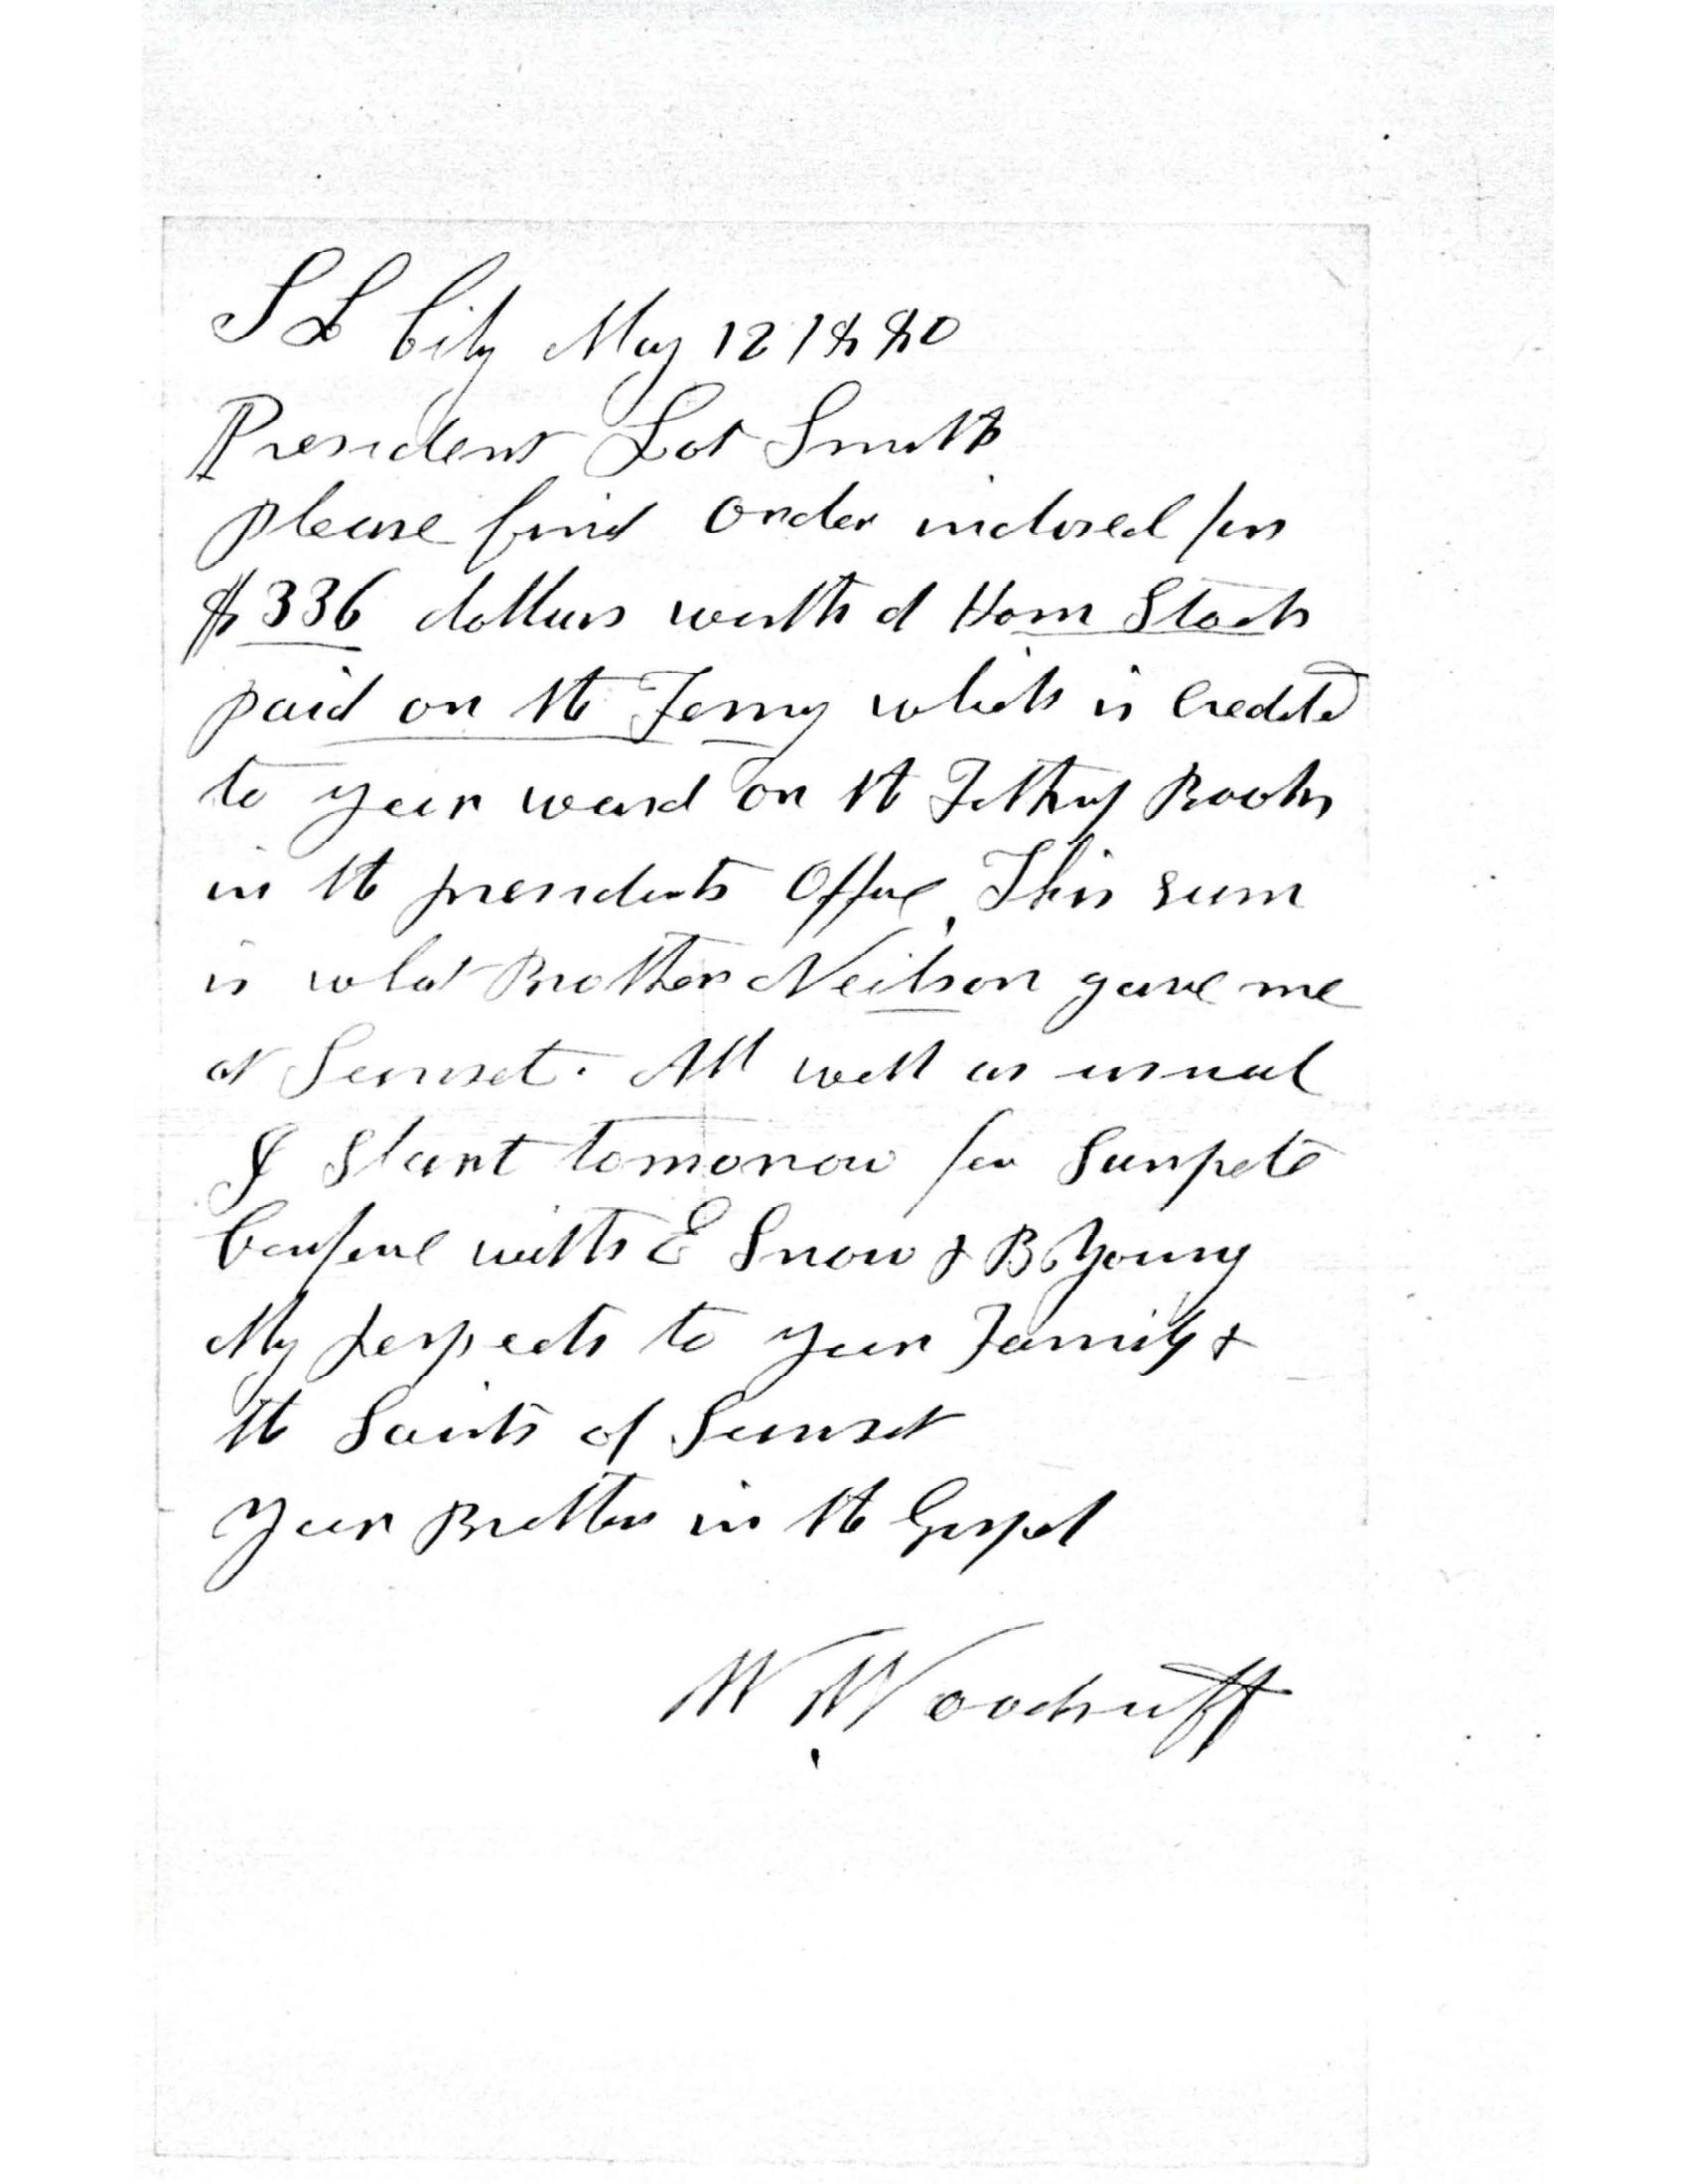 S L City May 12 1880
President Lot Smith
please find order inclosed for
$336 dollars worth of Horn Stock
paid on the Ferry which is Credited
to your ward on the Tithing Books
in the presidents Office, This sum
is what Brother Neilson gave me
at Sunset. All well as usual
I Start tomorrow for Sanpete
with E Snow & B Young
My respects to your Family &
the Saints of Sunset
Your Brother in the Gospel
W. Woodruff